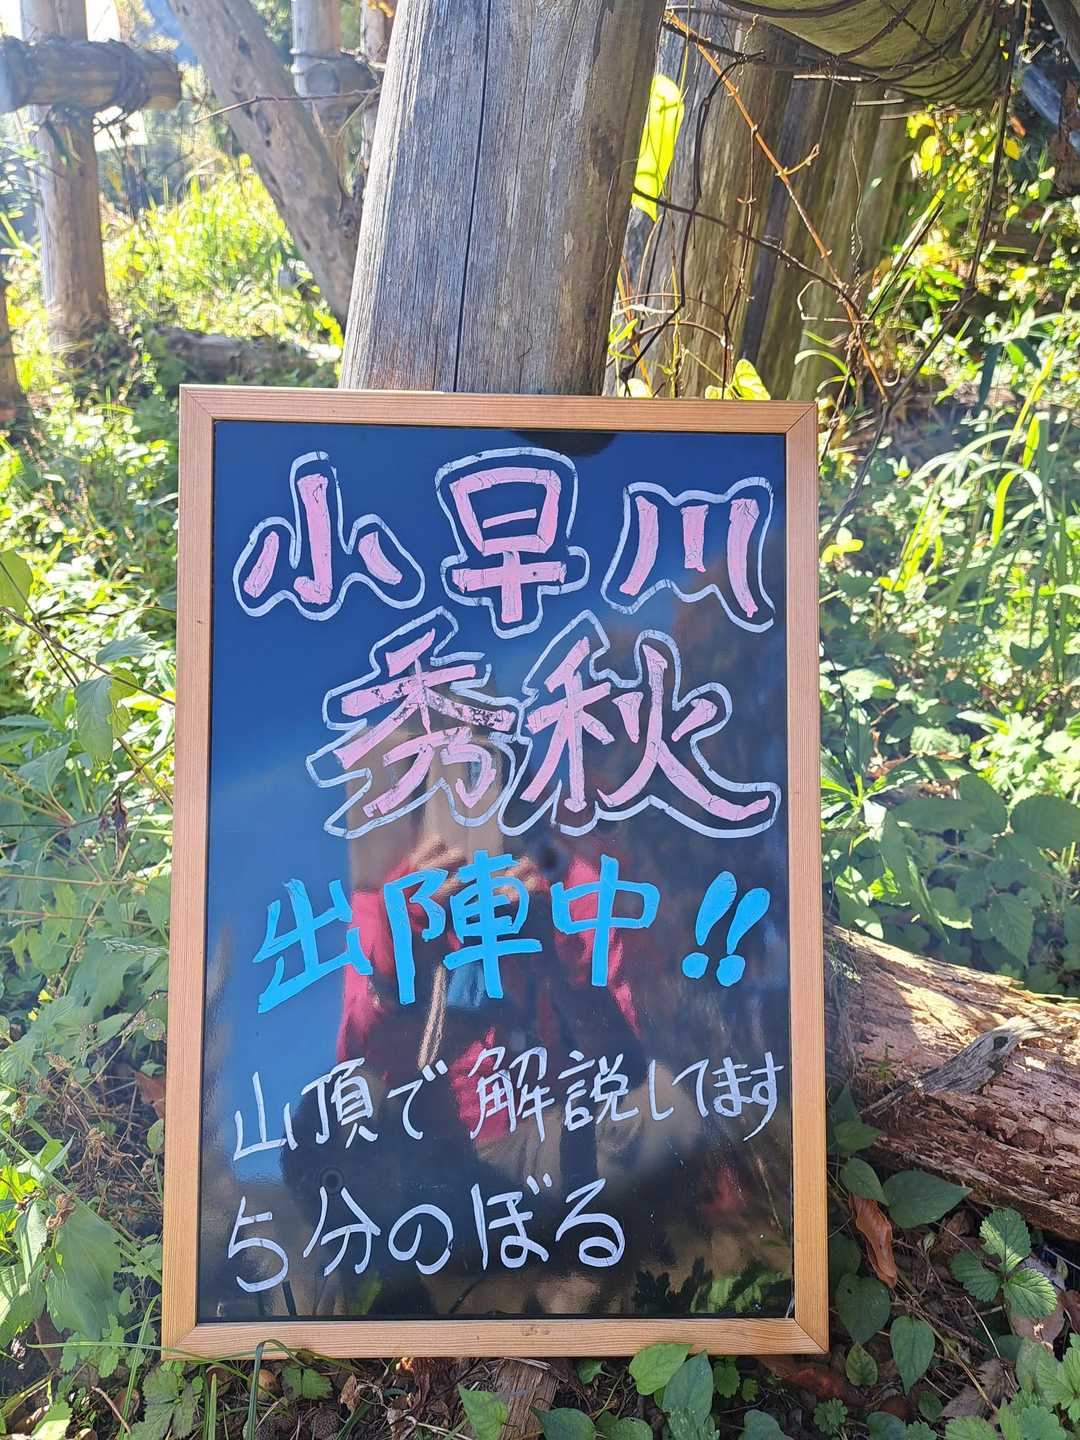 小早川
秀秋
出陣中!!
山頂で解説してます
5分のぼる